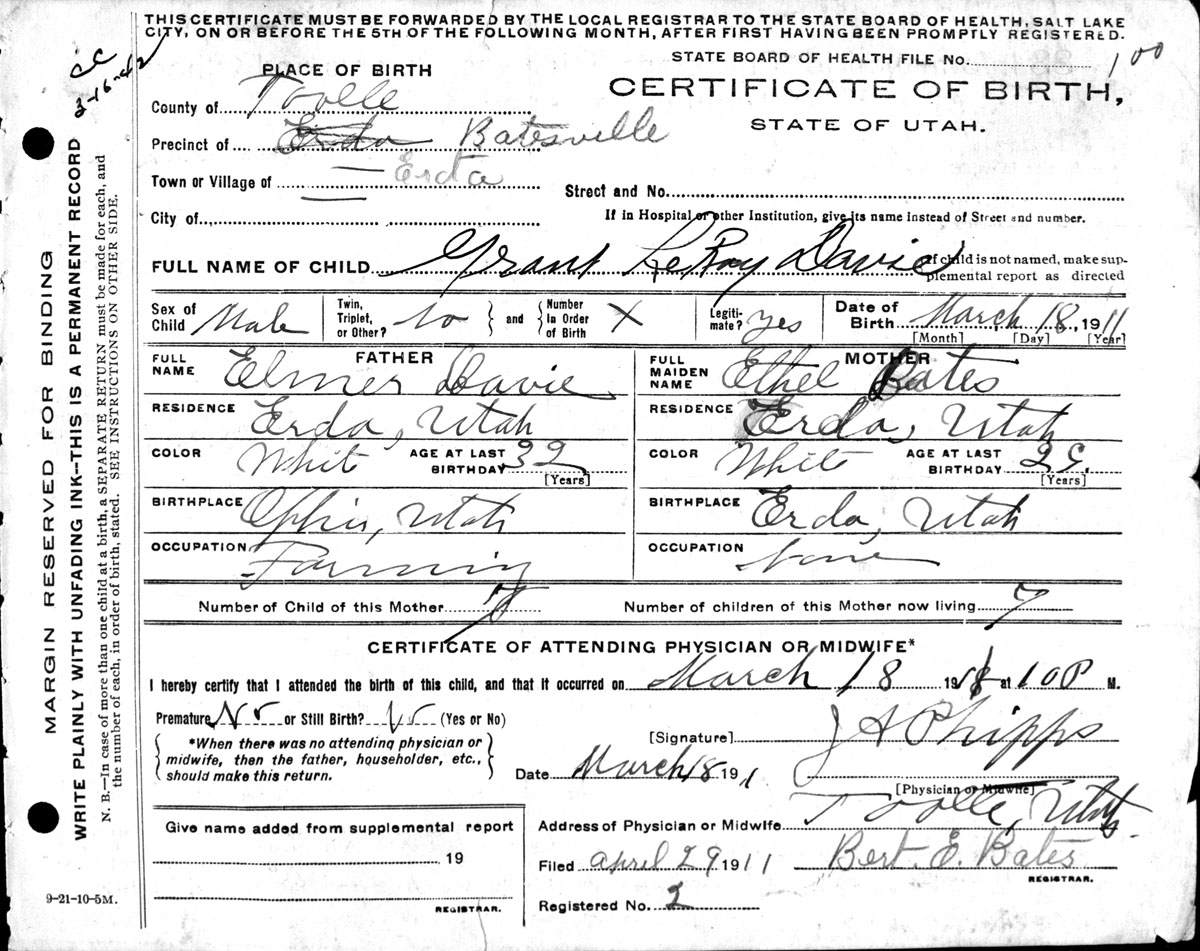 THIS CERTIFICATE MUST BE FORWARDED BY THE LOCAL REGISTRAR TO THE STATE BOARD OF HEALTH, SALT LAKE
CITY, ON OR BEFORE THE 5TH OF THE FOLLOWING MONTH, AFTER FIRST HAVING BEEN PROMPTLY REGISTERED.
STATE BOARD OF HEALTH FILE No. 100
CERTIFICATE OF BIRTH,
STATE OF UTAH.
PLACE OF BIRTH
County of Tooele
Precinct of Erda Batesville
Town or Village of Erda
Street and No.
City of
If in Hospital or other Institution, give its name instead of Street and number.
FULL NAME OF CHILD Grant LeRoy Davie
If child is not named, make sup-
plemental report as directed
Sex of Child Male
Twin, Triplet, or Other? No and Number In Order of Birth X
Legiti-mate? yes
Date of Birth March 18, 1911
[Month] [Day] [Year]
FATHER
FULL NAME Elmer Davie
RESIDENCE Erda, Utah
COLOR White AGE AT LAST BIRTHDAY 32
[Years]
BIRTHPLACE Ophir, Utah
OCCUPATION Farming
MOTHER
FULL MAIDEN NAME Ethel Bates
RESIDENCE Erda, Utah
COLOR White AGE AT LAST BIRTHDAY 29
[Years]
BIRTHPLACE Erda, Utah
OCCUPATION None
Number of Child of this Mother
Number of children of this Mother now living 7
CERTIFICATE OF ATTENDING PHYSICIAN OR MIDWIFE*
I hereby certify that I attended the birth of this child, and that it occurred on March 18 191 at 10 P M.
Premature No or Still Birth? No (Yes or No)
*When there was no attending physician or
midwife, then the father, householder, etc.,
should make this return.
[Signature] J A Phipps
Date March 18 1911
[Physician or Midwife]
Address of Physician or Midwife Tooele, Utah
Give name added from supplemental report
19
REGISTRAR.
Filed April 29 1911 Bert. E. Bates
REGISTRAR.
Registered No. 2
9-21-10-5M.
MARGIN RESERVED FOR BINDING
WRITE PLAINLY WITH UNFADING INK--THIS IS A PERMANENT RECORD
N. B.—In case of more than one child at a birth, a SEPARATE RETURN must be made for each, and
the number of each, in order of birth, stated. SEE INSTRUCTIONS ON OTHER SIDE.